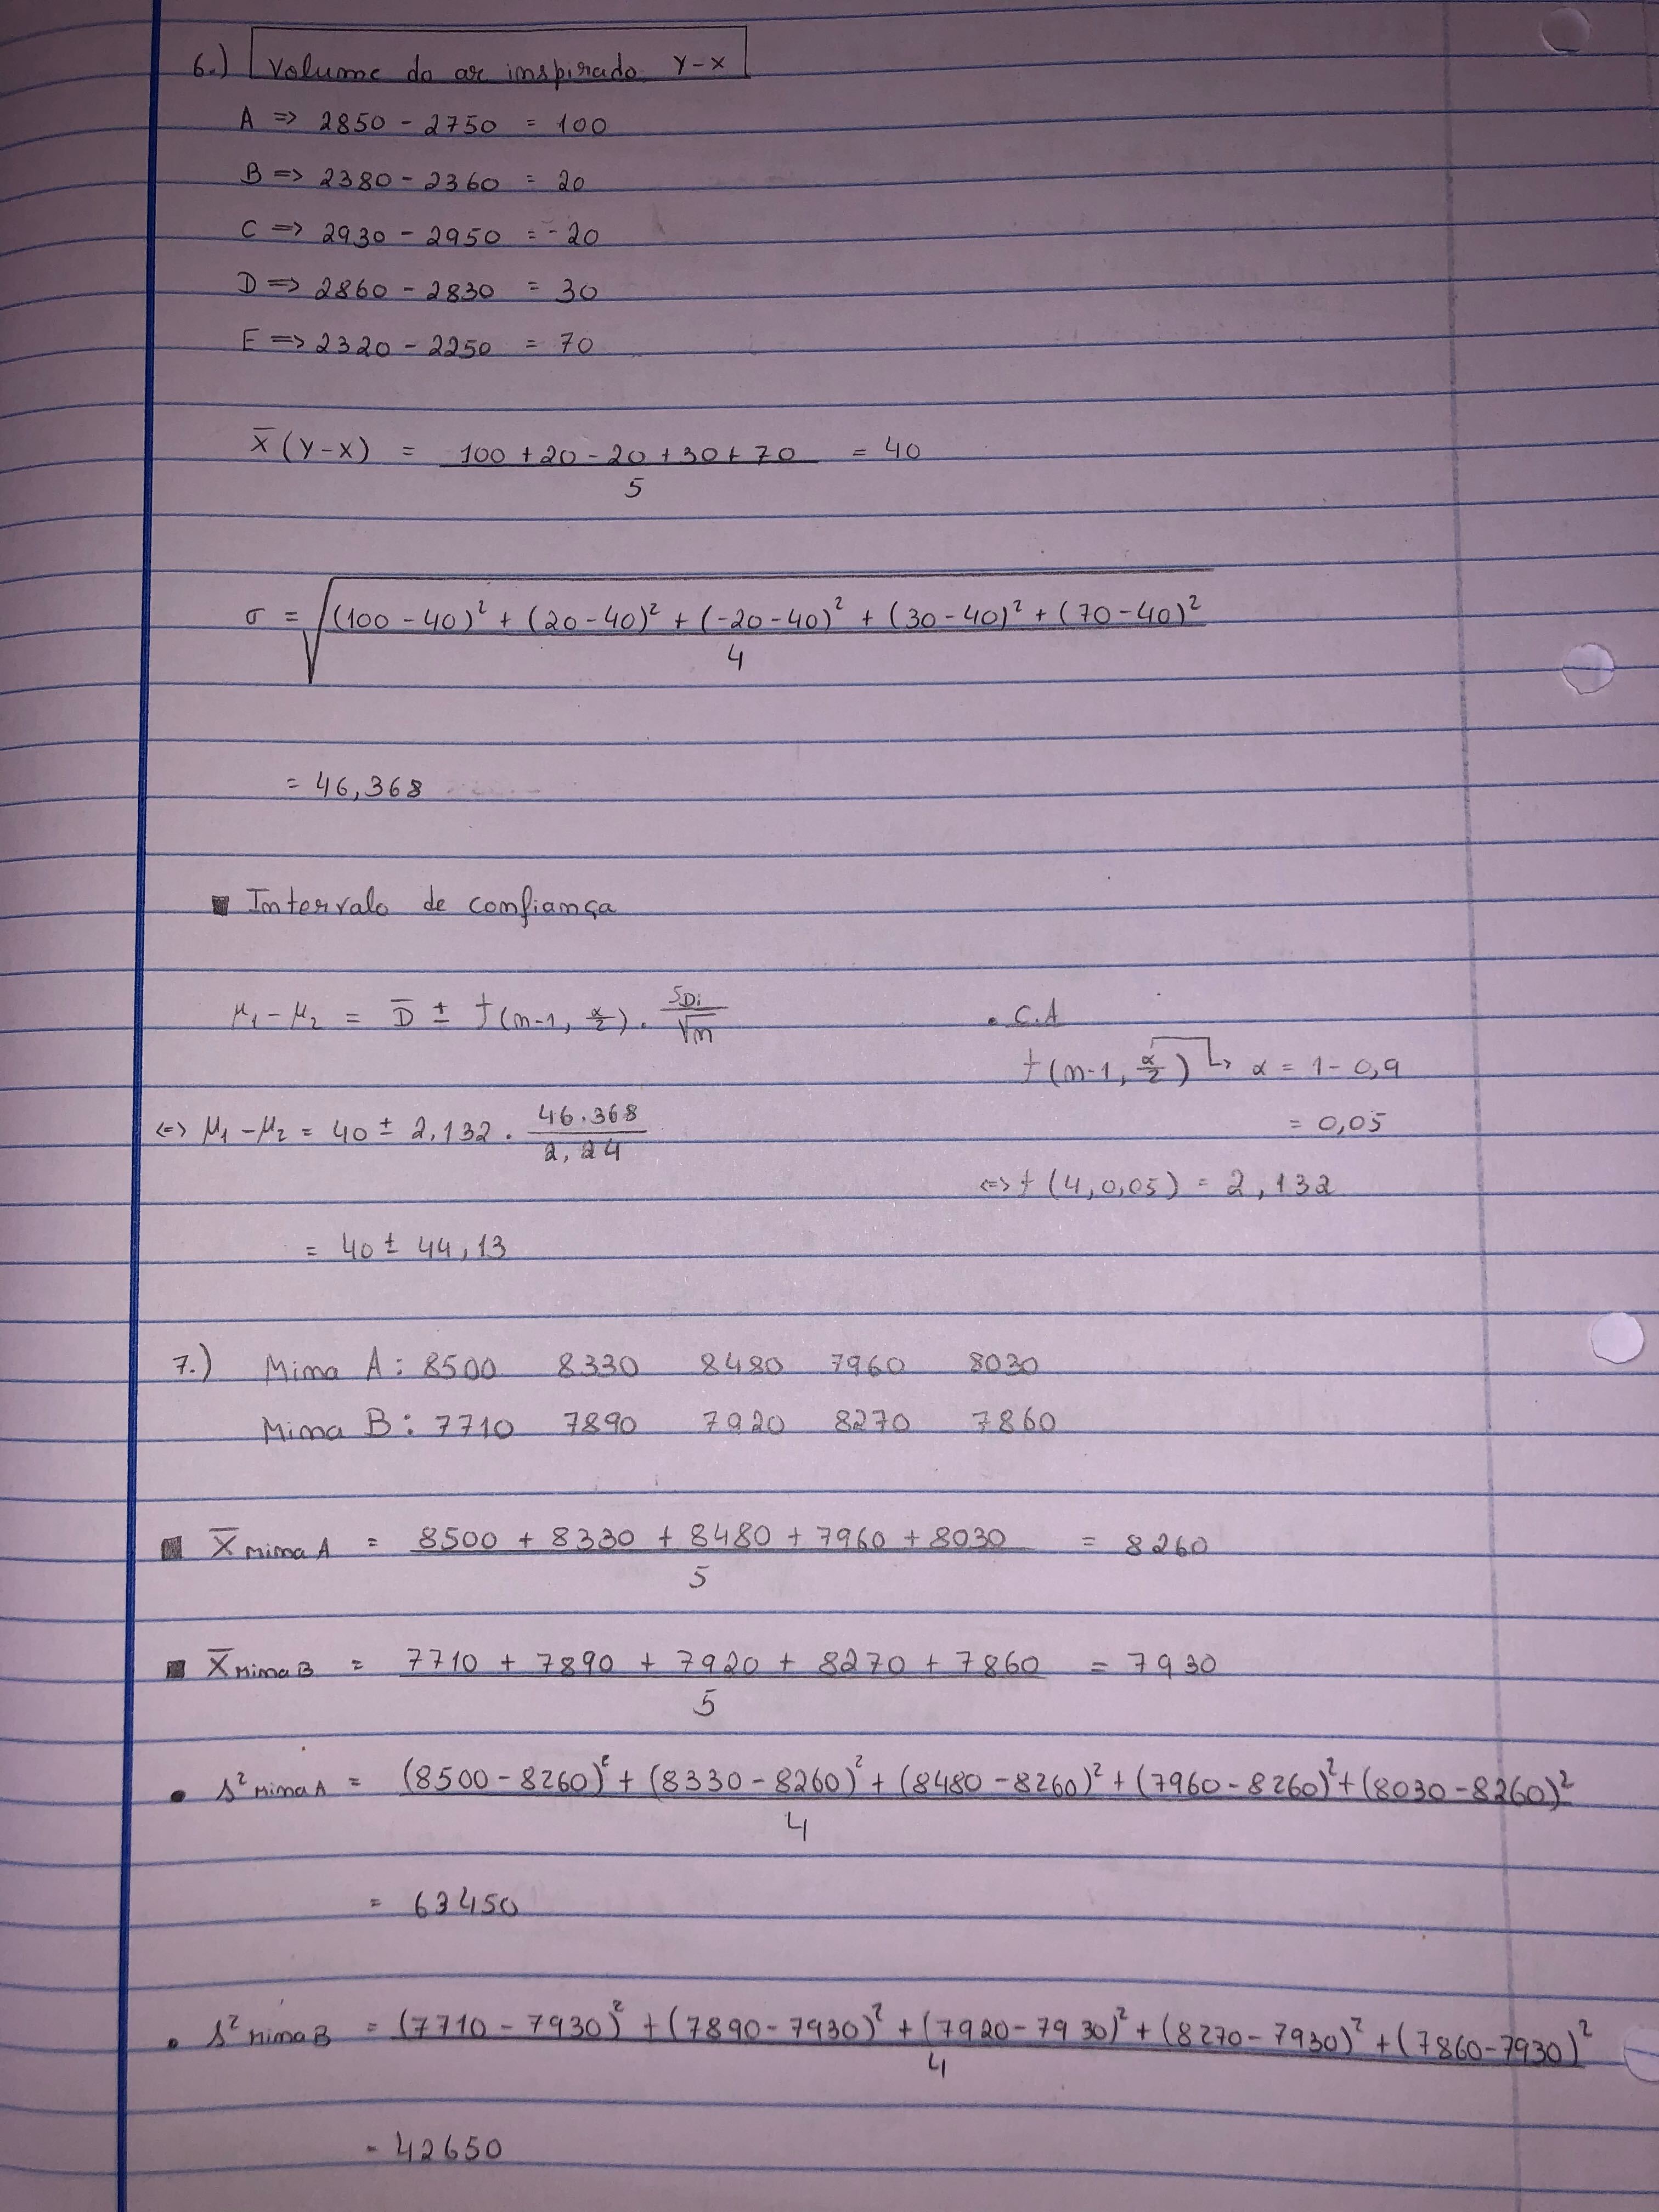 6.) Volume do ar inspirado Y-X
A => 2850 - 2750 = 100
B => 2380 - 2360 = 20
C => 2930 - 2950 = -20
D => 2860 - 2830 = 30
E => 2320 - 2250 = 70
x̄ (Y-X) = (100 + 20 - 20 + 30 + 70)/5 = 40
σ = √(((100 - 40)² + (20 - 40)² + (-20 - 40)² + (30 - 40)² + (70 - 40)²)/4)
= 46,368
Intervalo de confiança
μ₁ - μ₂ = D̄ ± t(n-1, α/2) . SDi/√n
• C.A
t(n-1, α/2) ↳ α = 1 - 0,9
= 0,05
<=> t(4, 0,05) = 2,132
<=> μ₁ - μ₂ = 40 ± 2,132 . 46.368/2,24
= 40 ± 44,13
7.) Mina A: 8500 8330 8480 7960 8030
Mina B: 7710 7890 7920 8270 7860
X̄ Mina A = (8500 + 8330 + 8480 + 7960 + 8030)/5 = 8260
X̄ Mina B = (7710 + 7890 + 7920 + 8270 + 7860)/5 = 7930
• s² Mina A = ((8500 - 8260)² + (8330 - 8260)² + (8480 - 8260)² + (7960 - 8260)² + (8030 - 8260)²)/4
= 63450
• s² Mina B = ((7710 - 7930)² + (7890 - 7930)² + (7920 - 7930)² + (8270 - 7930)² + (7860 - 7930)²)/4
= 42650